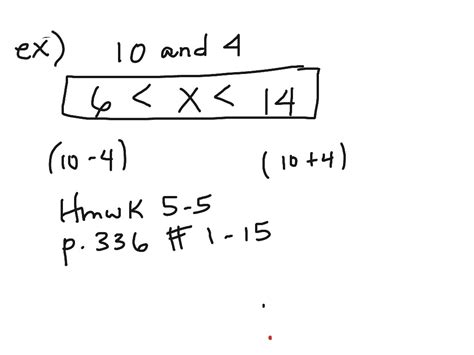 ex) 10 and 4
6 < x < 14
(10-4) (10+4)
Hmwk 5-5
p. 336 # 1-15